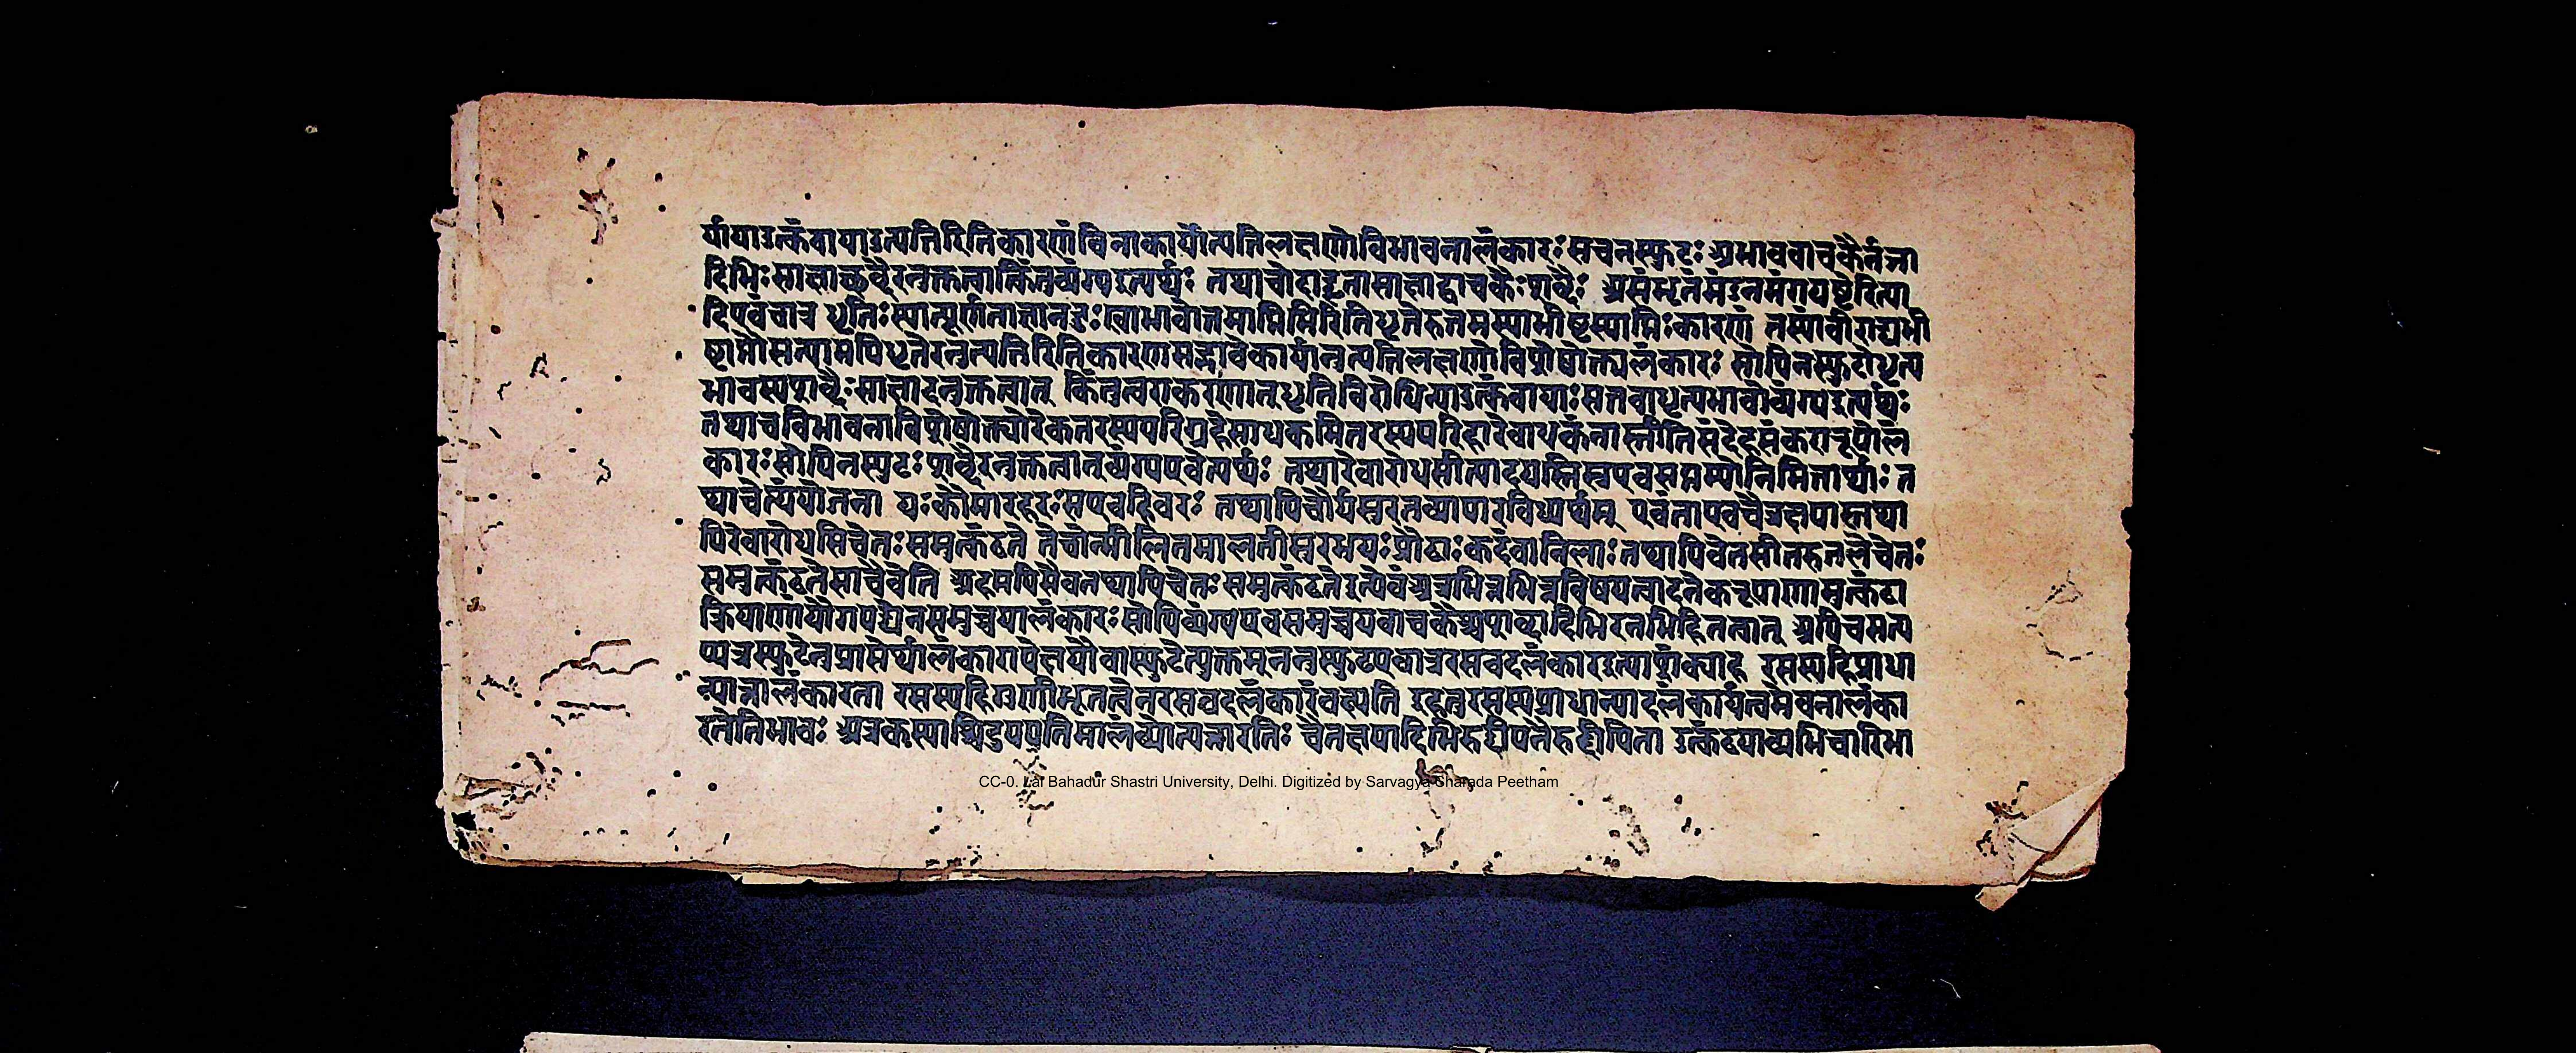 र्यायाउत्कंठायाउत्पत्तिरितिकारणंविनाकार्योत्पत्तिलक्षणोविभावनालंकारः सचनस्फुटः अभाववाचकैर्नञा
दिभिः साक्षाच्छब्दैरनुक्तत्वात्किंतुव्यंग्यइत्यर्थः तथाचोदाहृतासाक्षाद्वाचकैः शब्दैः असंभृतंमंडनमंगयष्टेरित्या
दि एवंचात्र धृतिः स्यात्पूर्णताज्ञानदुः खाभावाप्तमाप्तिभिरितिधृतेरुत्तमस्याभीष्टस्याप्तिः कारणं तस्यांवीराद्यभी
ष्टाप्तौसत्यामपिधृतेरनुत्पत्तिरितिकारणसद्भावेकार्यानुत्पत्तिलक्षणोविशेषोक्त्यलंकारः सोपिनस्फुटोधृत्य
भावस्यशब्दैः साक्षादनुक्तत्वात् किंतुत्वराकरणात्धृतिविरोधिन्याउत्कंठायाः सत्तवाधृत्यभावोव्यंग्यइत्यर्थः
तथाचविभावनाविशेषोक्त्योरेकतरस्यपरिग्रहेसाधकमितरस्यपरिहारेबाधकंनास्तीतिसंदेहसंकररूपोलं
कारः सोपिनस्फुटः शब्दैरनुक्तत्वात्व्यंग्यएवेत्यर्थः तथारेवारोधसीत्यादयस्तिस्रएवसप्तम्योनिमित्तार्थाः त
थाचेत्थंयोजना यः कौमारहरः सएवहिवरः तथापिचौर्यसुरतव्यापारविध्यर्थम् एवंताएवचैत्रक्षपास्तथा
पिरेवारोधसिचेतः समुत्कंठते तेचोन्मीलितमालतीसुरभयः प्रौढाः कदंबानिलाः तथापिवेतसीतरुतलेचेतः
समुत्कंठतेसाचैवेति अहमपिसैवतथापिचेतः समुत्कंठतेइत्येवंअत्रभिन्नभिन्नविषयत्वादनेकरूपाणामुत्कंठा
क्रियाणांयौगपद्येनसमुच्चयालंकारः सोपिव्यंग्यएवसमुच्चयवाचकैश्चशब्दादिभिरनभिहितत्वात् अपिचमत्य
प्यत्रस्फुटेनुप्रासेर्थालंकारापेक्षयैवास्फुटेत्युक्तम्ननुस्फुटएवात्ररसवदलंकारइत्याशंक्याह रसस्यहिप्राधा
न्यान्नालंकारता रसस्यहिगुणीभूतत्वेनरसवदलंकारंवक्ष्यति इहतुरसस्यप्राधान्यादलंकार्यत्वमेवनालंका
रतेतिभावः अत्रकस्याश्चिदुपपतिमालंब्योत्पन्नारतिः चैत्रक्षपादिभिरुद्दीपनैरुद्दीपिता उत्कंठयाव्यभिचारिभा
CC-0. Lal Bahadur Shastri University, Delhi. Digitized by Sarvagya Sharada Peetham